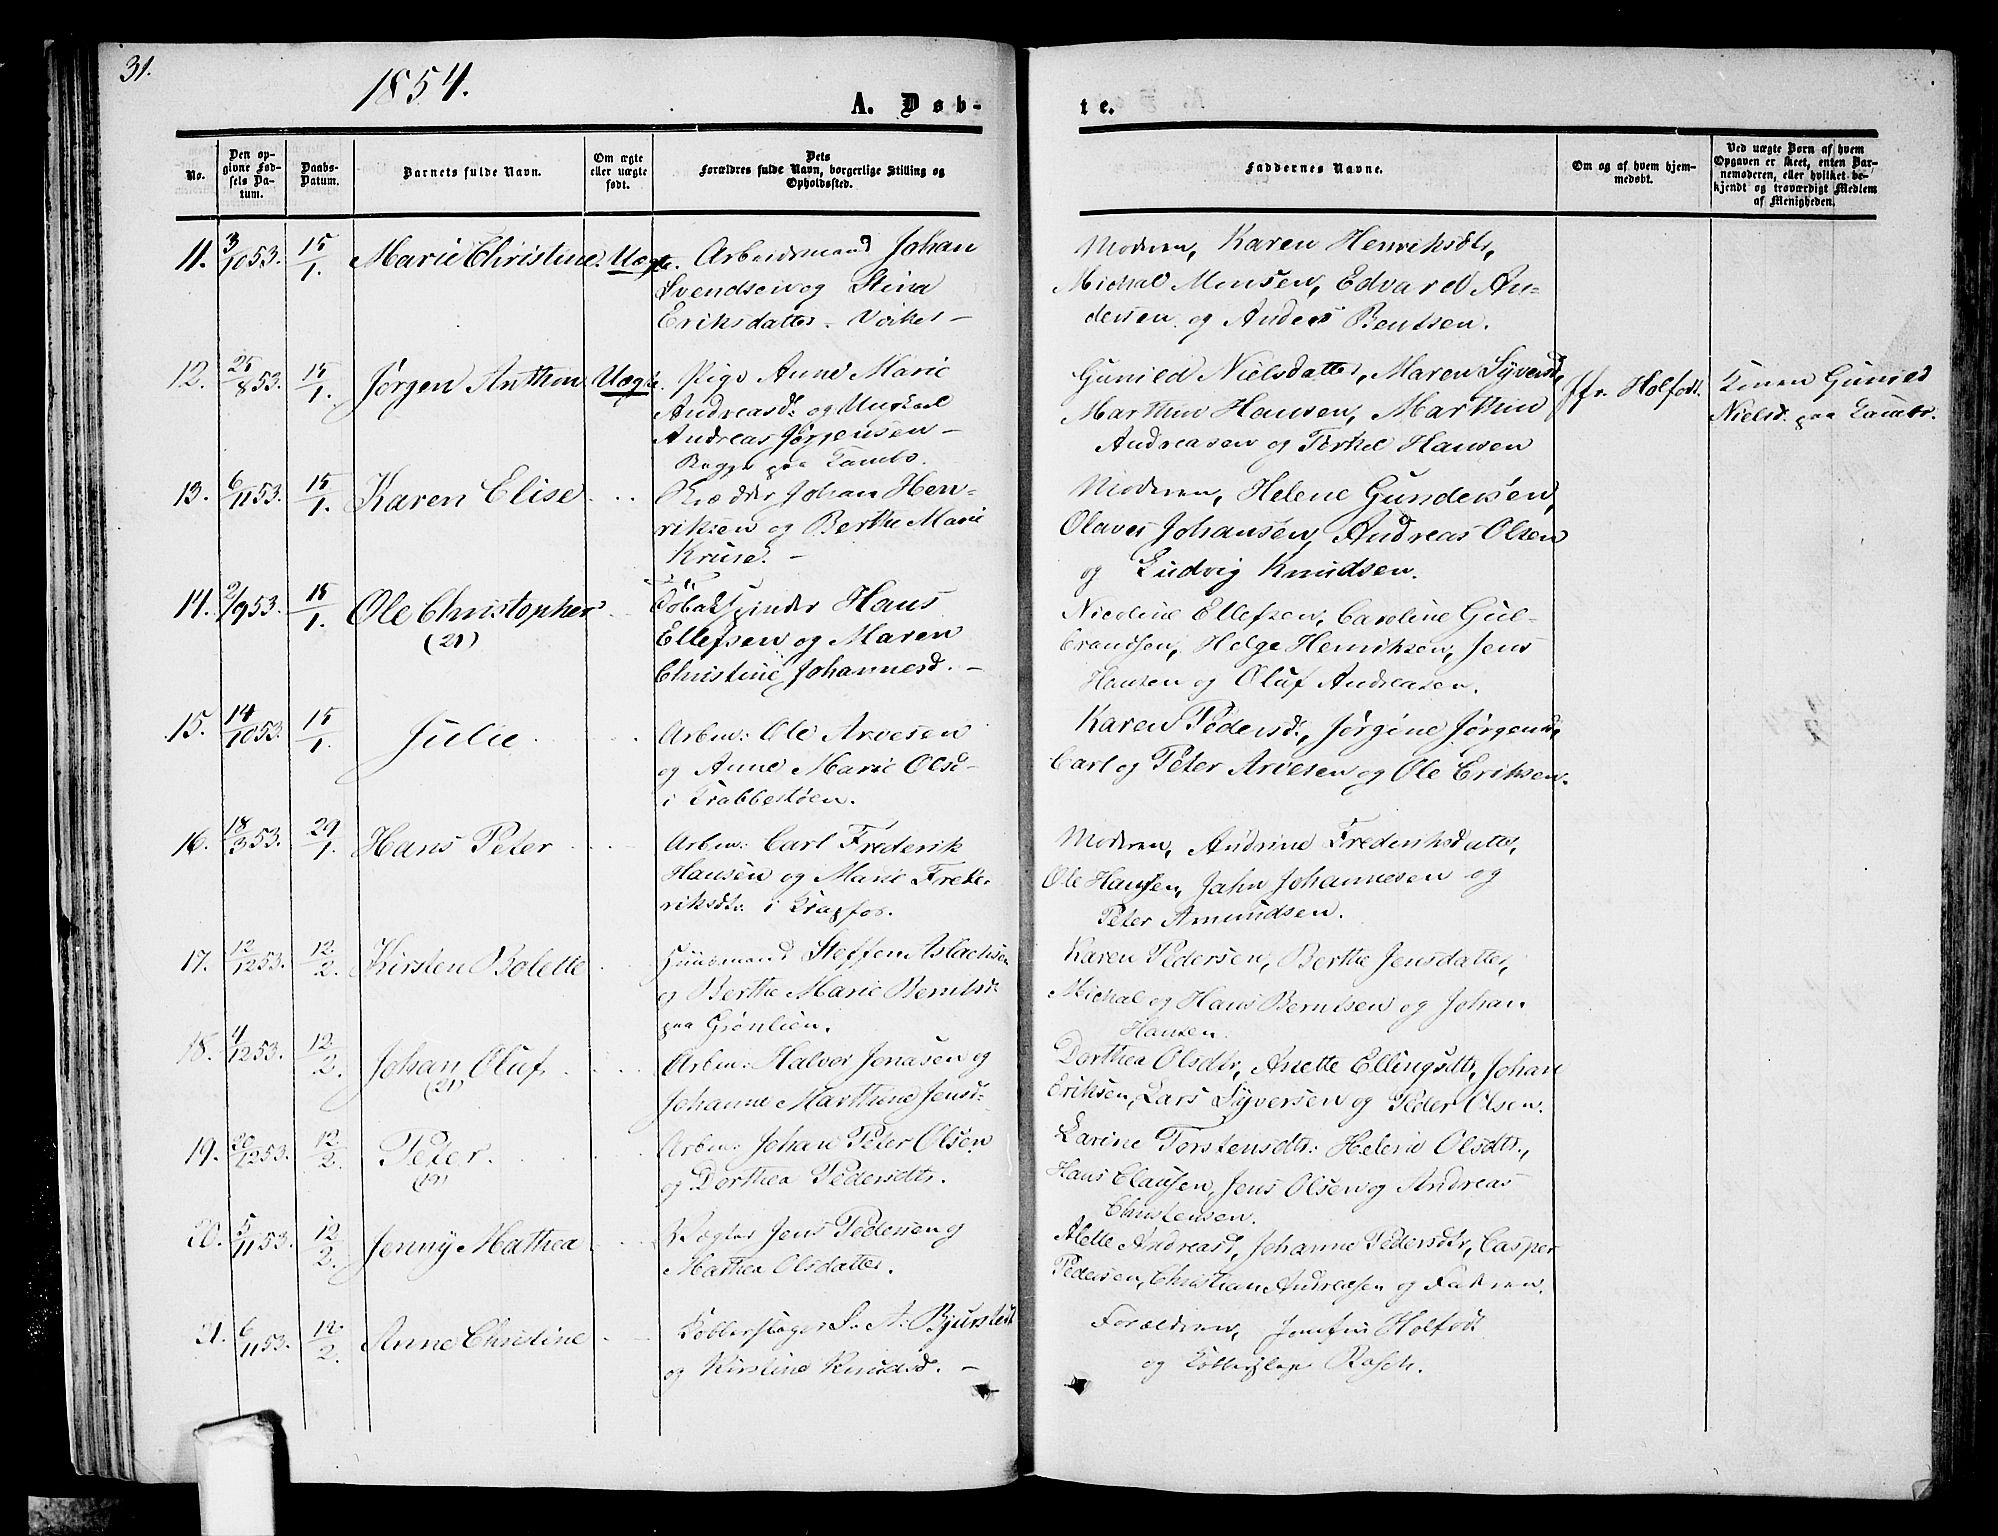 31.
1854.
A. Døb-
te.
No.
Den op-
givne Fød-
sels Da-
tum.
Daabs-
Datum.
Barnets fulde Navn.
Om ægte
eller uægte
født.
Dets
Forældres fulde Navn, borgerlige Stilling og
Opholdssted.
Faddernes Navne.
Om og af hvem hjem-
medøbt.
Ved uægte Børn af hvem
Opgaven er skeet, enten Bar-
nemoderen, eller hvilket be-
kjendt og troværdigt Medlem
af Menigheden.
11. 3/10 53. 15/1. Marie Christine. Uægte. Arbeidsmand Johan
Svendsen og Stina
Eriksdatter.
Moderen, Karen Henriksdtr,
Michal Monsen, Edvard An-
dersen og Anders Bentsen.
12. 25/8 53. 15/1. Jørgen Anthon Uægte. Pige Anne Marie
Andreasd. og Ungkarl
Andreas Jørgensen
Bagge paa Tambs.
Gunild Nielsdatter, Maren Syversd,
Marthin Hansen, Marthin
Andreasen og Terkel Hansen
Jfr. Holfodt.
Konen Gunild
Nielsd. paa Tambs.
13. 6/11 53. 15/1. Karen Elise
Johan Hen-
riksen og Berthe Marie
Kruse.
Moderen, Helene Gundersen,
Olaves Johansen, Andreas Olsen
og Ludvig Knudsen.
14. 2/9 53. 15/1. Ole Christopher
(21)
Tobakspinder Hans
Ellefsen og Maren
Christine Johannesd.
Nicoline Ellefsen, Caroline Gul-
brandsen, Helge Henriksen, Jens
Hansen og Oluf Andreasen.
15. 14/10 53. 15/1. Julie
Arbm: Ole Arvesen
og Anne Marie Olsd
i Krabbestøen.
Karen Pedersd., Jørgine Jørgensd,
Carl og Peter Arvesen og Ole Eriksen.
16. 18/3 53. 29/1. Hans Peter
Arbm: Carl Frederik
Hansen og Marie Frede-
riksdtr. i Krapfos.
Moderen, Andrine Frederiksdatter,
Ole Hansen, Jahn Johannesen og
Peter Amundsen.
17. 12/12 53. 12/2. Kirsten Bolette
Huusmand Steffen Aslachsen
og Berthe Marie Berntsd.
paa Grønlien.
Karen Pedersen, Berthe Jensdatter,
Michal og Hans Berntsen og Johan
Hansen.
18. 4/12 53. 12/2. Johan Oluf.
(21)
Arbm: Halvor Jonasen og
Johanne Marthine Jensd.
Dorthea Olsdtr, Anette Ellingsdtr, Johan
Eriksen, Lars Syversen og Peder Olsen.
19. 20/12 53. 12/2. Peter.
(19)
Arbm: Johan Peter Olsen
og Dorthea Pedersdtr.
Larine Torstensdtr: Helene Olsdtr,
Hans Clausen, Jens Olsen og Andreas
Christensen.
20. 5/11 53. 12/2. Jenny Mathea
Vægter Jens Pedersen og
Mathea Olsdatter.
Alette Andreasd, Johanne Pedersdtr, Casper
Pedersen, Christian Andreasen og Faderen.
21. 6/11 53. 12/2. Anne Christine
Kobberslager S. A. Bjurstedt
og Kirstine Knudsd.
Forældrene, Jomfru Holfodt
og Kobberslag. Rasch.